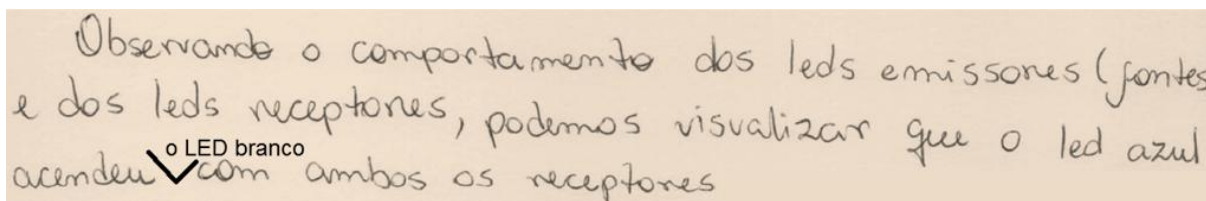 Observando o comportamento dos leds emissores (fontes
e dos leds receptores, podemos visualizar que o led azul
o LED branco
acendeu com ambos os receptores